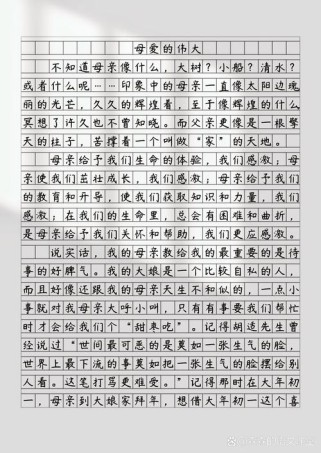 母爱的伟大
不知道母亲像什么，大树？小船？清水？
或者什么呢……印象中的母亲一直像太阳边瑰
丽的光芒，久久的辉煌着，至于像辉煌的什么
冥想了许久也不曾知晓。而父亲更像是一根擎
天的柱子，苦撑着一个叫做“家”的天地。
母亲给于我们生命的体验，我们感激；母
亲使我们茁壮成长，我们感激；母亲给予我们
的教育和开导，使我们获取知识和力量，我们
感激；在我们的生命里，总会有困难和曲折，
是母亲给予我们关怀和帮助，我们更应感激。
说实话，我的母亲教给我的最重要的是待
事的好脾气。我的大娘是一个比较自私的人，
而且好像还跟我的母亲天生不和似的，一点小
事就对我母亲大呼小叫，只有有事要我们帮忙
时才会给我们个“甜枣吃”。记得胡适先生曾
经说过“世间最可恶的是莫如一张生气的脸，
世界上最下流的事莫如把一张生气的脸摆给别
人看。这笔打骂更难受。”记得那时在大年初
一，母亲到大娘家拜年，想借大年初一这个喜